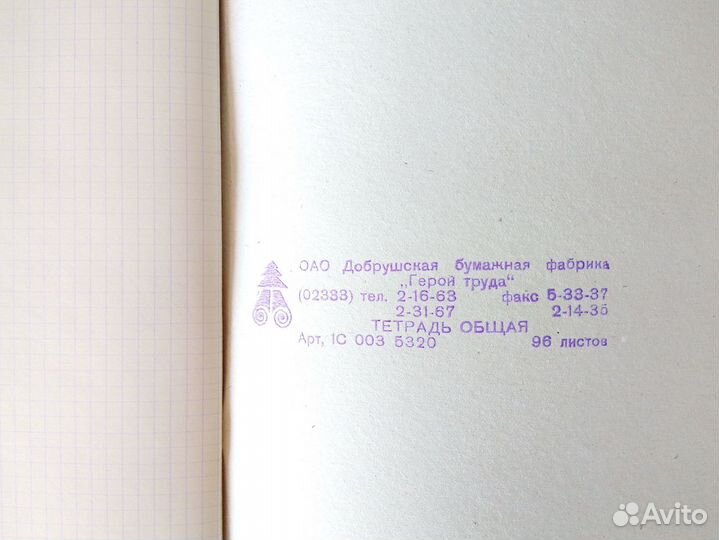 ОАО Добрушская бумажная фабрика
„Герой труда"
(02333) тел. 2-16-63 факс 5-33-37
2-31-67 2-14-35
ТЕТРАДЬ ОБЩАЯ
Арт, 1С 003 5320 96 листов
Avito